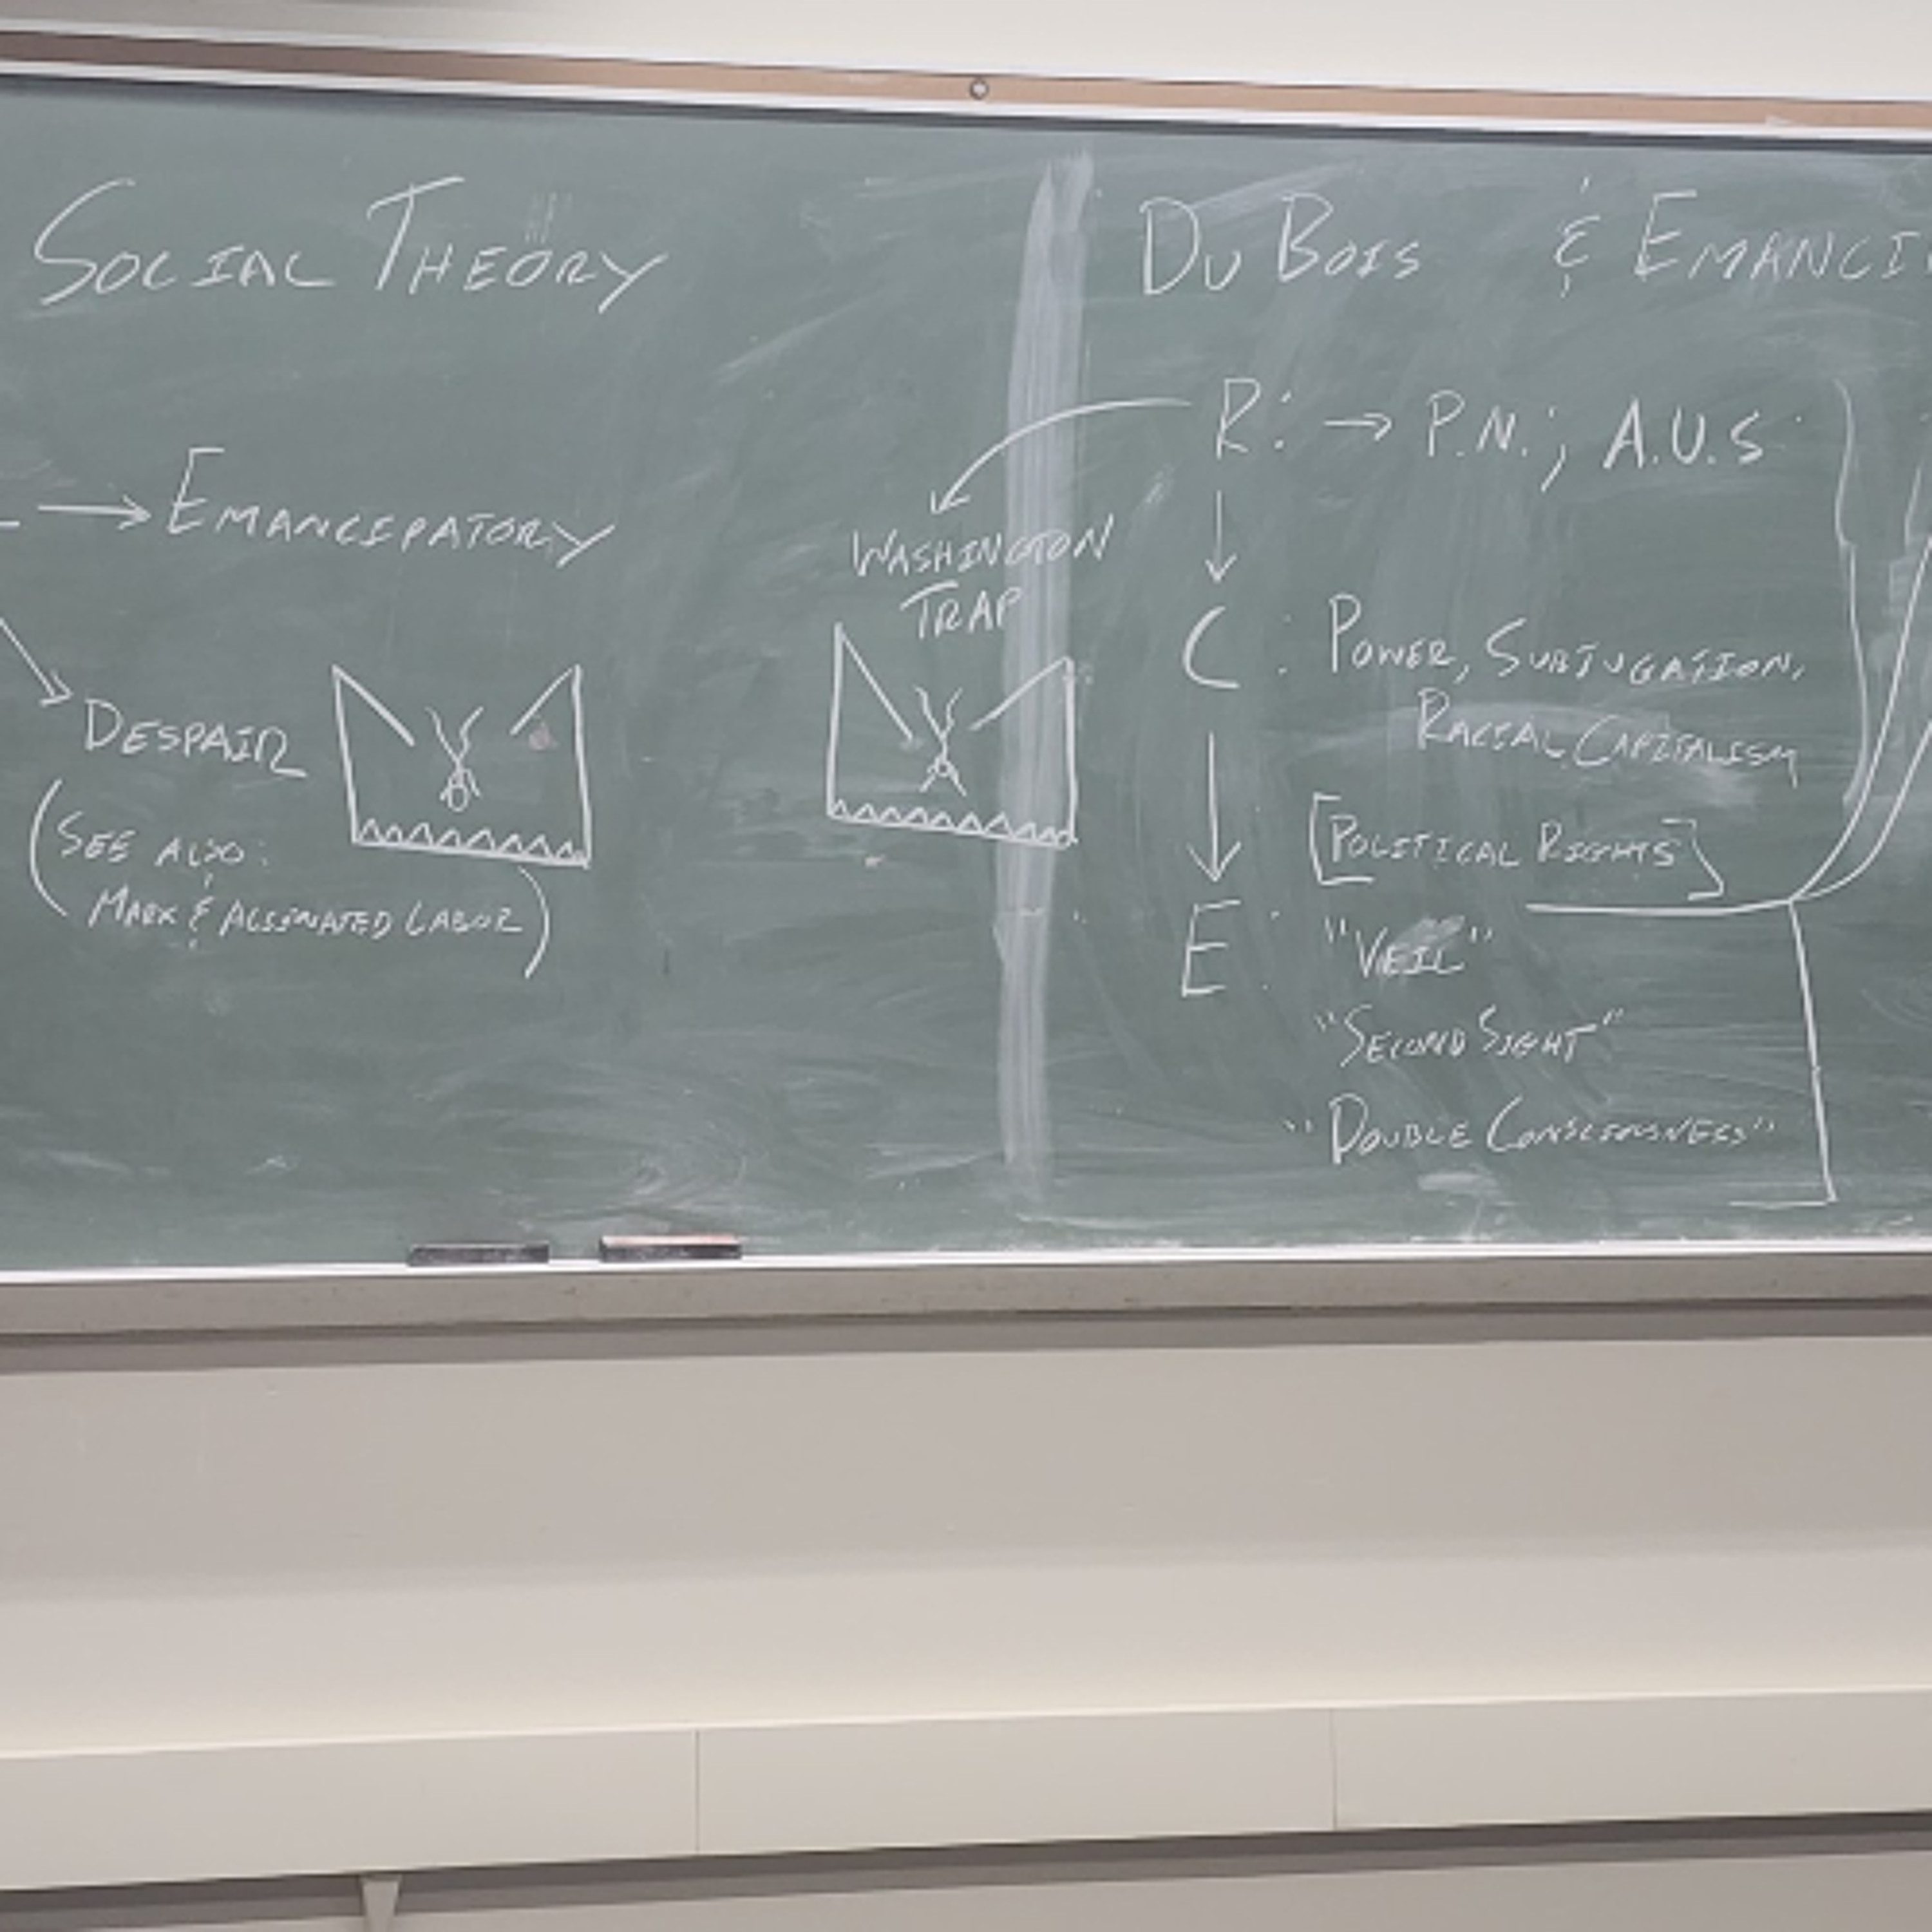 SOCIAL THEORY
→ EMANCIPATORY
DESPAIR
(SEE ALSO:
MARX & ALIENATED LABOR)
WASHINGTON
TRAP
DU BOIS & EMANCI
R: → P.N.; A.U.S.
C: POWER, SUBJUGATION,
RACIAL CAPITALISM
[POLITICAL RIGHTS]
E: "VEIL"
"SECOND SIGHT"
"DOUBLE CONSCIOUSNESS"